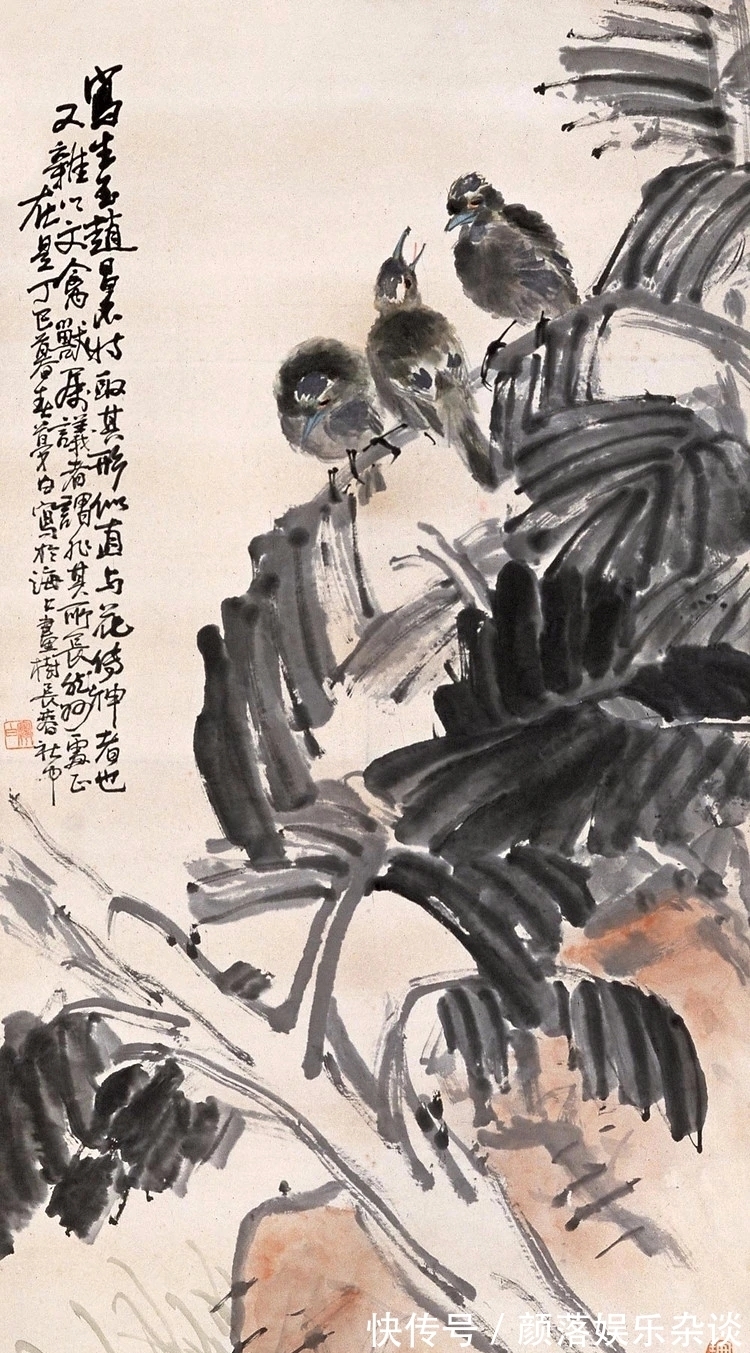 寫生至趙昌不特取其形似直与花傳神者也
又雜以文禽獸議者謂非其所長然妙處正
在是丁巳暮春夢白寫於海上畫樹長春社中
快传号 / 颜落娱乐杂谈